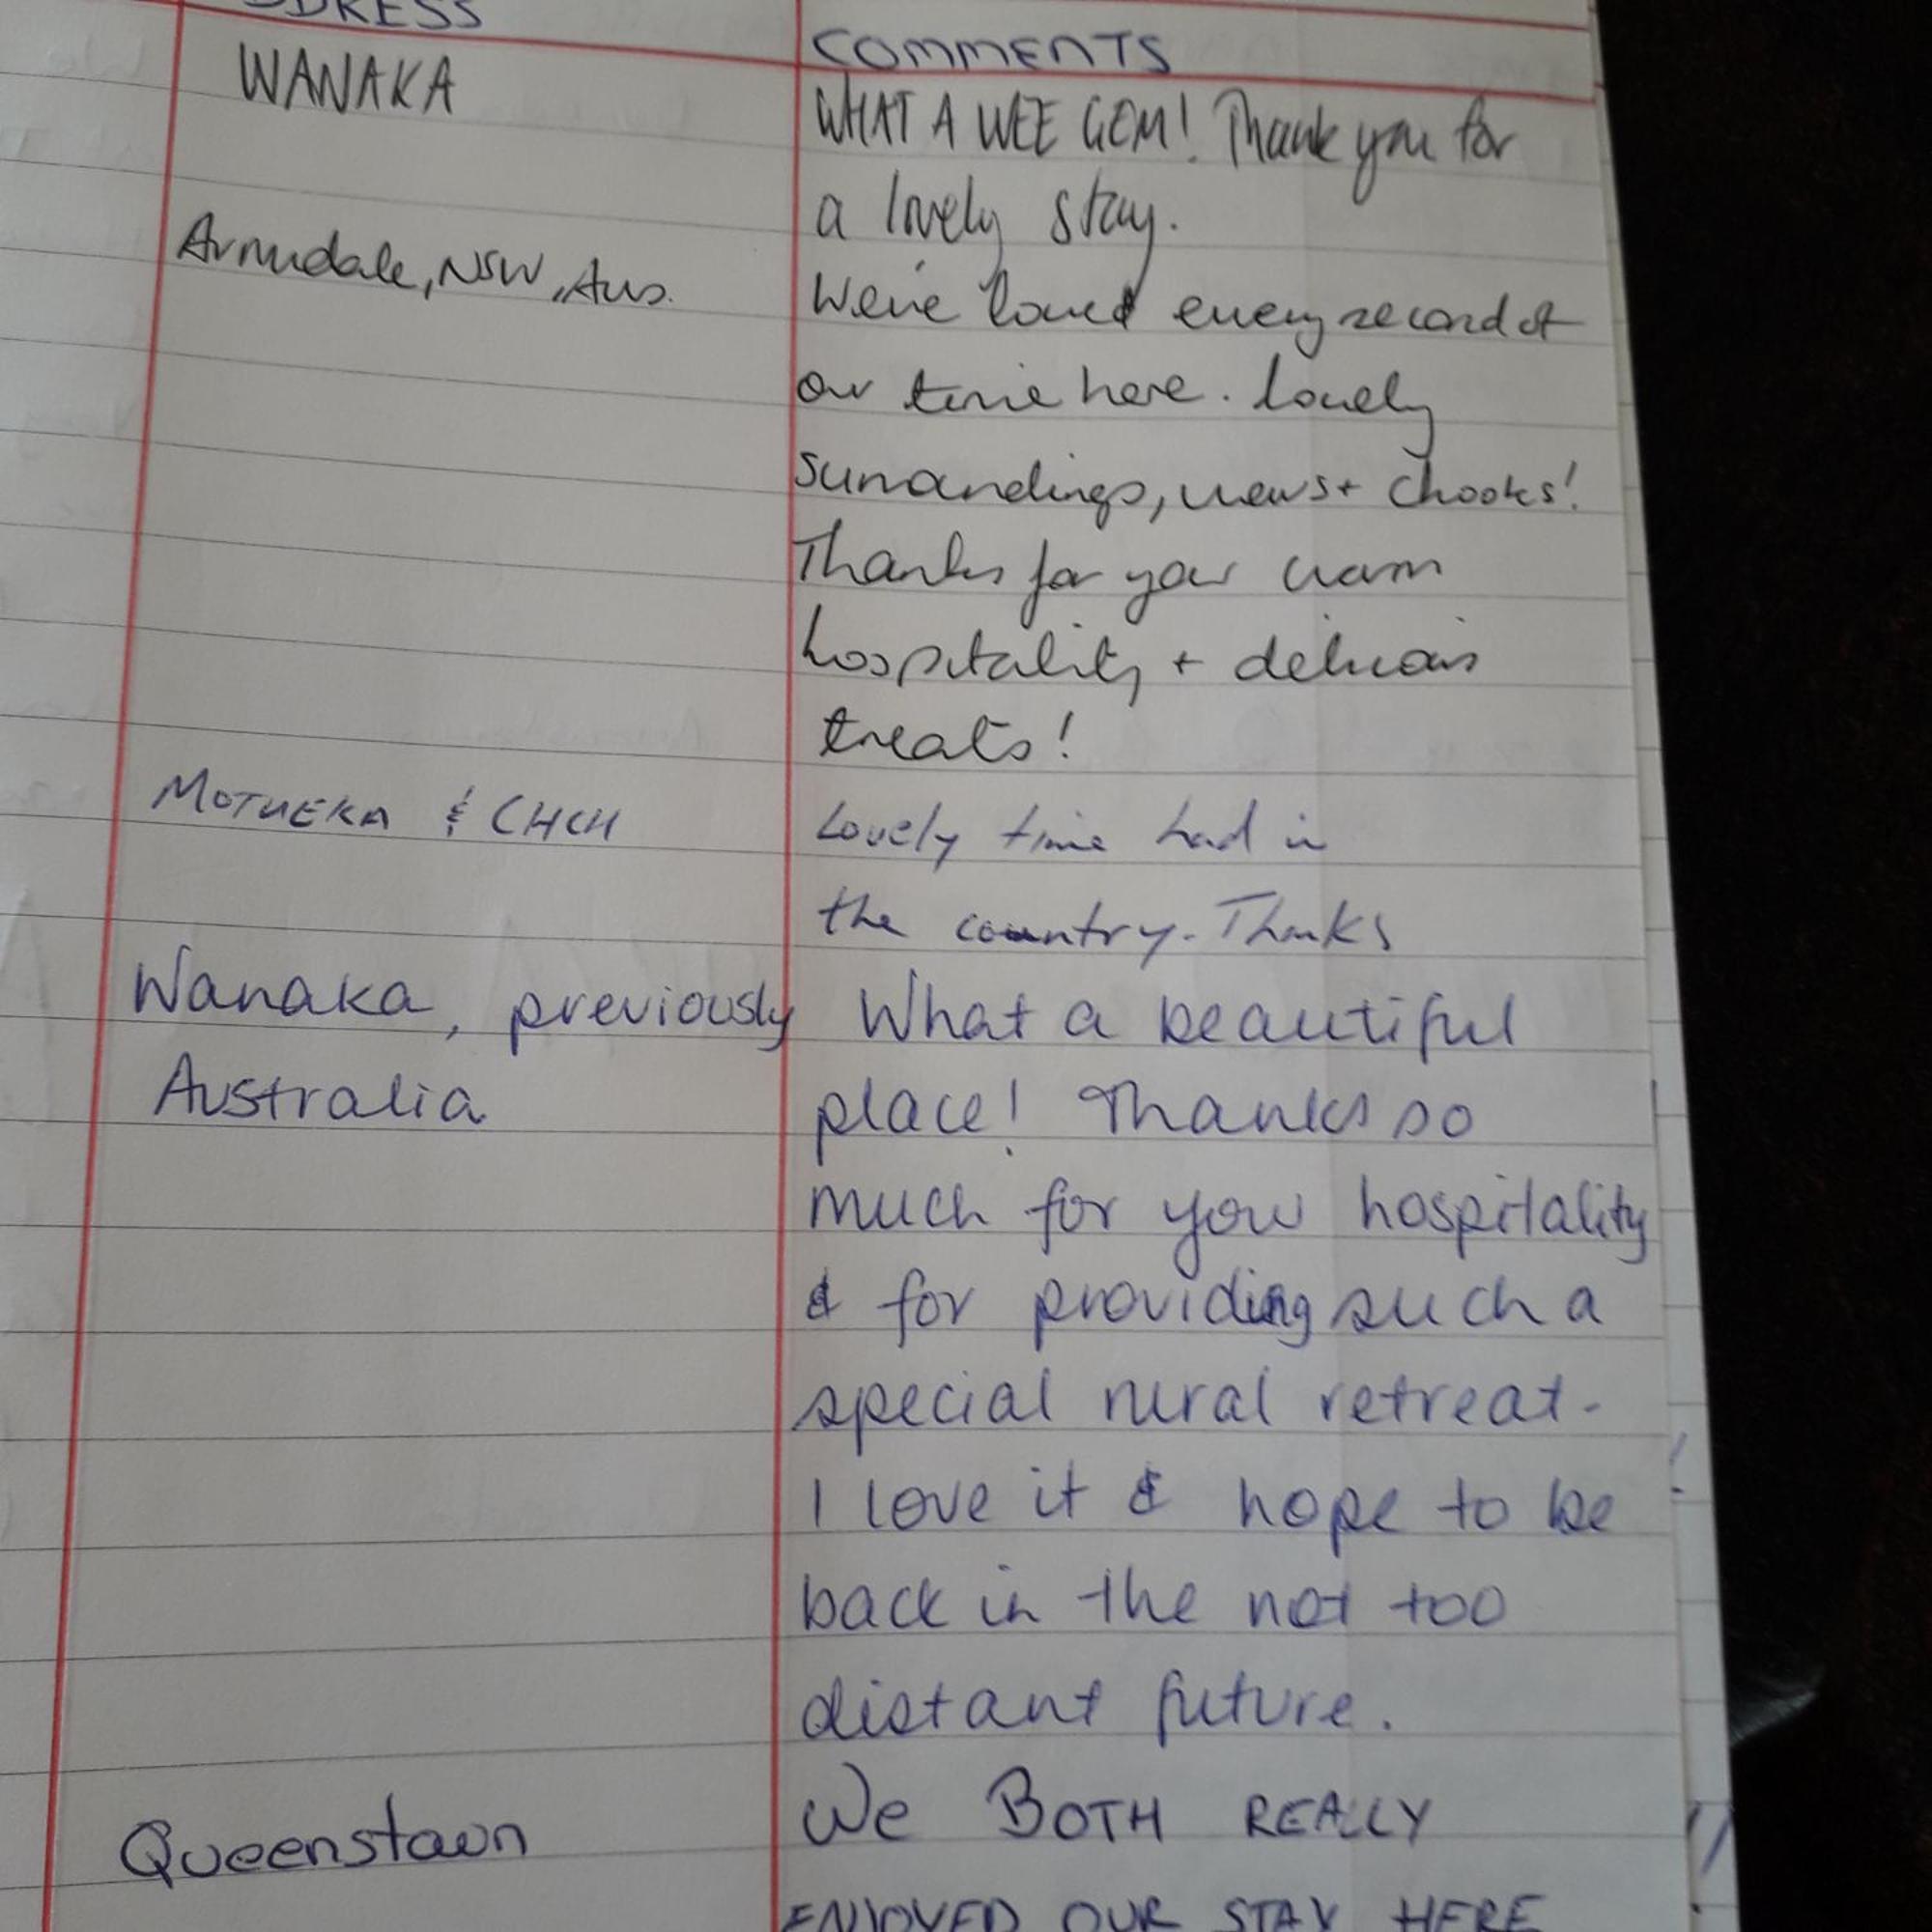 DDRESS
COMMENTS
WANAKA
WHAT A WEE GEM! Thank you for
a lovely stay.
Armidale, NSW, Aus.
We've loved every second of
our time here. Lovely
surroundings, views + chooks!
Thanks for your warm
hospitality + delicious
treats!
MOTUEKA & CHCH
Lovely time had in
the country. Thanks
Wanaka, previously
Australia
What a beautiful
place! Thanks so
much for your hospitality
& for providing such a
special rural retreat.
I love it & hope to be
back in the not too
distant future.
Queenstown
We BOTH REALLY
ENJOYED OUR STAY HERE